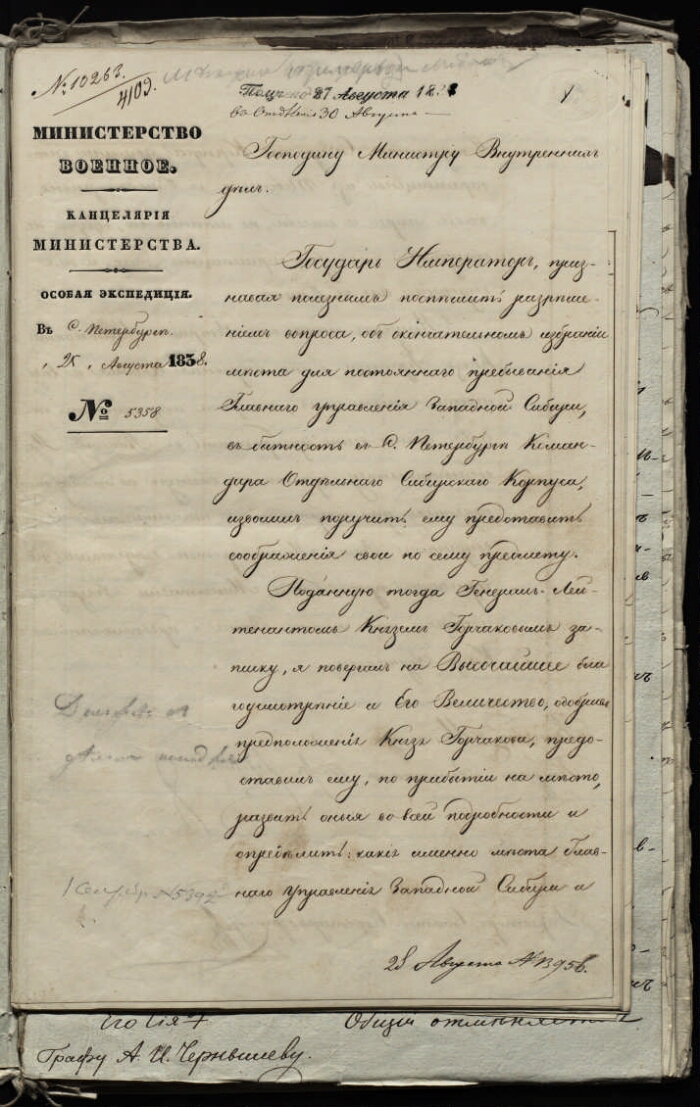 № 10263.
4109.
Получено 27 Августа 1838
во Отдѣленіи 30 Августа
МИНИСТЕРСТВО
ВОЕННОЕ.
КАНЦЕЛЯРІЯ
МИНИСТЕРСТВА.
ОСОБАЯ ЭКСПЕДИЦІЯ.
Въ С. Петербургѣ.
Августа 1838.
№ 5358
Господину Министру Внутреннихъ
дѣлъ.
Государь Императоръ, приз-
навая полезнымъ поспѣшить разрѣше-
ніемъ вопроса, объ окончательномъ избраніи
мѣста для постояннаго пребыванія
Главнаго управленія Западной Сибири,
въ бытность въ С. Петербургѣ Коман-
дира Отдѣльнаго Сибирскаго Корпуса,
изволилъ поручить ему представить
соображенія свои по сему предмету.
Поданную тогда Генералъ-Лей-
тенантомъ Княземъ Горчаковымъ за-
писку, я повергалъ на Высочайшее бла
гоусмотрѣніе и Его Величество, одобривъ
предположенія Князя Горчакова, предо-
ставилъ ему, по прибытіи на мѣсто,
развить оныя во всей подробности и
опредѣлить: какъ именно мѣста Глав-
наго управленія Западной Сибири и
1 Сентября № 5392
28 Августа № 1395
Общій
Графу А. И. Чернышеву.